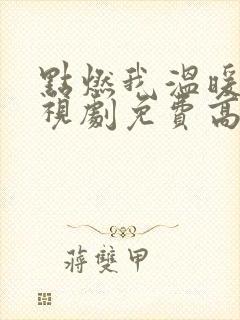 點燃我溫暖
視劇免費高
蔣雙甲